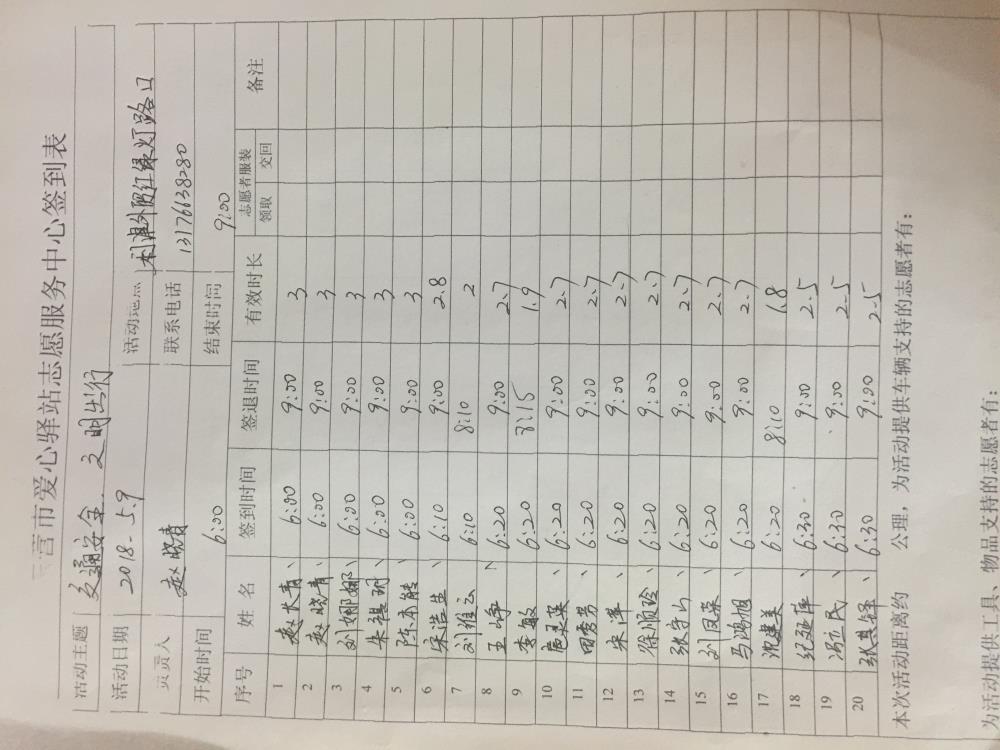 营市爱心驿站志愿服务中心签到表
活动主题 交通安全 文明出行
活动日期 2018-5.9 活动地点 利津外国红绿灯路口
负责人 赵晓青 联系电话 13176638280
开始时间 6:00 结束时间 9:00
序号 姓名 签到时间 签退时间 有效时长 志愿者服装 领取 交回 备注
1 赵长青 6:00 9:00 3
2 赵晓青 6:00 9:00 3
3 刘娜娜 6:00 9:00 3
4 朱 6:00 9:00 3
5 陈 6:00 9:00 3
6 宋浩生 6:10 9:00 2.8
7 刘维云 6:10 8:10 2
8 王峥 6:20 9:00 2.7
9 李敏 6:20 8:15 1.9
10 英 6:20 9:00 2.7
11 田秀芳 6:20 9:00 2.7
12 宋萍 6:20 9:00 2.7
13 徐顺玲 6:20 9:00 2.7
14 张守山 6:20 9:00 2.7
15 刘凤荣 6:20 9:00 2.7
16 马鸿旭 6:20 9:00 2.7
17 沈建美 6:20 8:10 1.8
18 纪延萍 6:30 9:00 2.5
19 冯立民 6:30 9:00 2.5
20 张其锋 6:30 9:00 2.5
本次活动距离约 公理，为活动提供车辆支持的志愿者有：
为活动提供工具、物品支持的志愿者有：